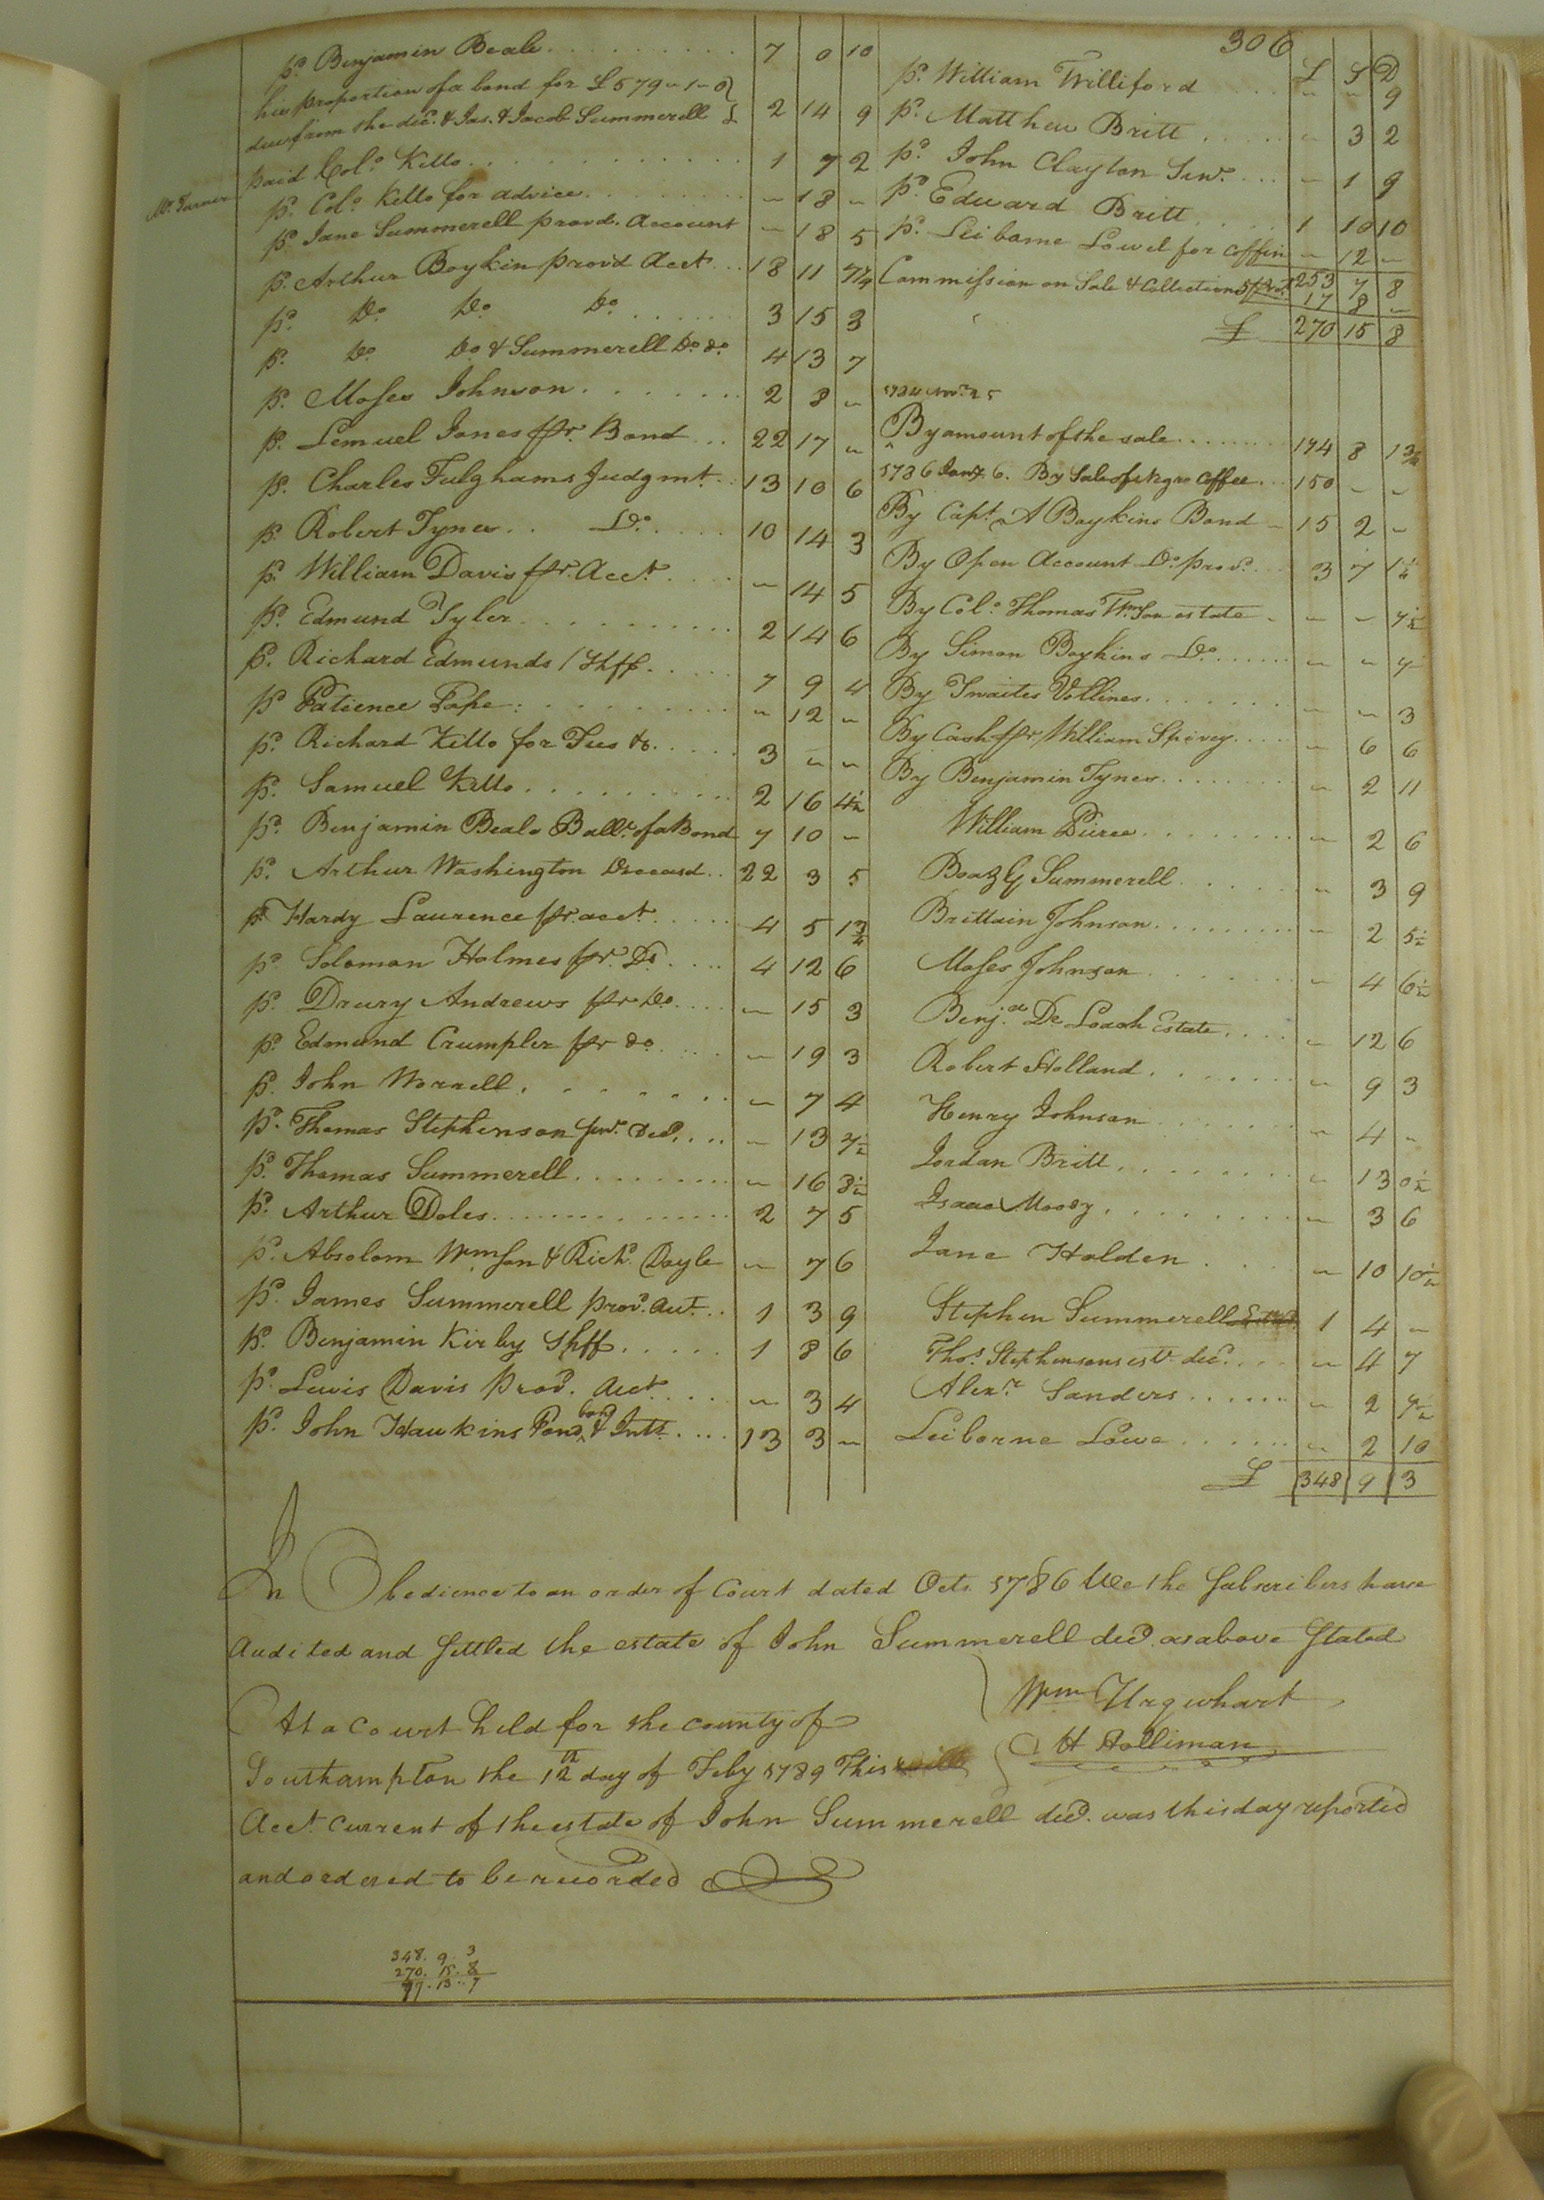 306
pd. Benjamin Beale . . . 7 0 10
his proportion of a bond for £579 " 1 " 0
due from the dec'd. & Jas. & Jacob Summerell 2 14 9
paid Colo. Kello . . . 1 7 2
Mr. Turner
pd. Colo. Kello for advice . . . " 18 "
pd. Jane Summerell provd. Account " 18 5
pd. Arthur Boykin prov'd Acct . . 18 11 7¼
pd. Do. Do. Do. . . . 3 15 3
pd. Do. Do. & Summerell Do. do. 4 13 7
pd. Moses Johnson . . . 2 8 "
pd. Lemuel Jones ffr. Bond . . . 22 17 "
pd. Charles Fulghams Judgmt. . . 13 10 6
pd. Robert Tynes . . Do. . . . 10 14 3
pd. William Davis ffr. Acct. . . . " 14 5
pd. Edmund Tyler . . . 2 14 6
pd. Richard Edmunds / Shff . . . 7 9 4
pd. Patience Pope . . . " 12 "
pd. Richard Kello for Fees &c. . . . 3 " "
pd. Samuel Kello . . . 2 16 4½
pd. Benjamin Beale Ballc. of a Bond 7 10 "
pd. Arthur Washington Deceasd. . 22 3 5
pd. Hardy Laurence ffr. acct. . . . 4 5 1¾
pd. Solomon Holmes ffr. Do. . . . 4 12 6
pd. Drury Andrews ffr Do. . . . " 15 3
pd. Edmund Crumpler ffr do. . . . " 19 3
pd. John Worrell . . . " 7 4
pd. Thomas Stephenson Junr. Decd. . . . " 13 7½
pd. Thomas Summerell . . . " 16 3½
pd. Arthur Doles . . . 2 7 5
pd. Absolom Wmson & Richd. Dayle " 7 6
pd. James Summerell prov'd. Act. . . 1 3 9
pd. Benjamin Kirby Shff . . . 1 8 6
pd. Lewis Davis Prov'd. Acct . . . " 3 4
pd. John Hawkins bond & Intt. . . . 13 3 "
£ S D
pd. William Williford . . . " " 9
pd. Matthew Britt . . . " 3 2
pd. John Clayton Senr. . . . " 1 9
pd. Edward Britt . . . 1 10 10
pd. Leiborne Lowel for coffin " 12 "
253 7 8
Commission on Sale & Collections 17 8 "
£ 270 15 8
1784 Novr. 25
By amount of the sale . . . 174 8 1¾
1786 Jany. 6. By Sale of Negro Coffee . . . 150 " "
By Capt. A Boykins Bond " 15 2 "
By Open Account Do. prov'd. . . 3 7 1½
By Colo. Thomas Wmson estate . " " 7½
By Simon Boykins Do. . . . " " 7
By Twaites Vollines . . . " " 3
By Cash ffr William Spivey . . . " 6 6
By Benjamin Tynes . . . " 2 11
William Peirce . . . " 2 6
Boaz G Summerell . . . " 3 9
Brittain Johnson . . . " 2 5½
Moses Johnson . . . " 4 6½
Benj.a De Loach Estate . . . " 12 6
Robert Holland . . . " 9 3
Henry Johnson . . . " 4 "
Jordan Britt . . . " 13 0½
Isaac Moody . . . " 3 6
Jane Holden . . . " 10 10½
Stephen Summerell 1 4 "
Thos. Stephensons est. dec'd. . . . " 4 7
Alexr. Sanders . . . " 2 7½
Leiborne Lowe . . . " 2 10
£ 348 9 3
In Obedience to an order of Court dated Oct. 1786 We the Subscribers have
Audited and Settled the estate of John Summerell decd. as above Stated
Wm Urquhart
H Holliman
At a Court held for the county of
Southampton the 12th day of Feby 1789 This
Acct. Current of the estate of John Summerell decd. was this day reported
and ordered to be recorded
348. 9. 3
270. 15. 8
77. 13. 7